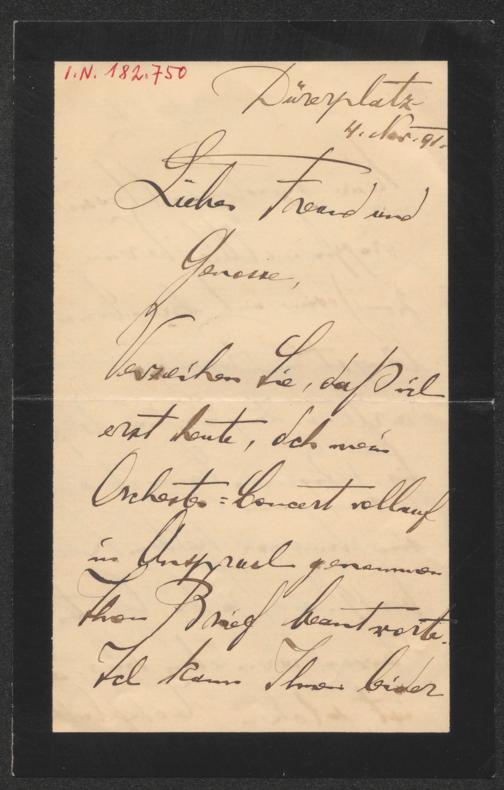 I.N. 182.750
Dürerplatz
4. Nov. 91.
Lieber Freund und
Genosse,
Verzeihen Sie, daß ich
erst heute, dch mein
Orchester=Concert vollauf
in Anspruch genommen
Ihren Brief beantworte.
Ich kann Ihnen leider